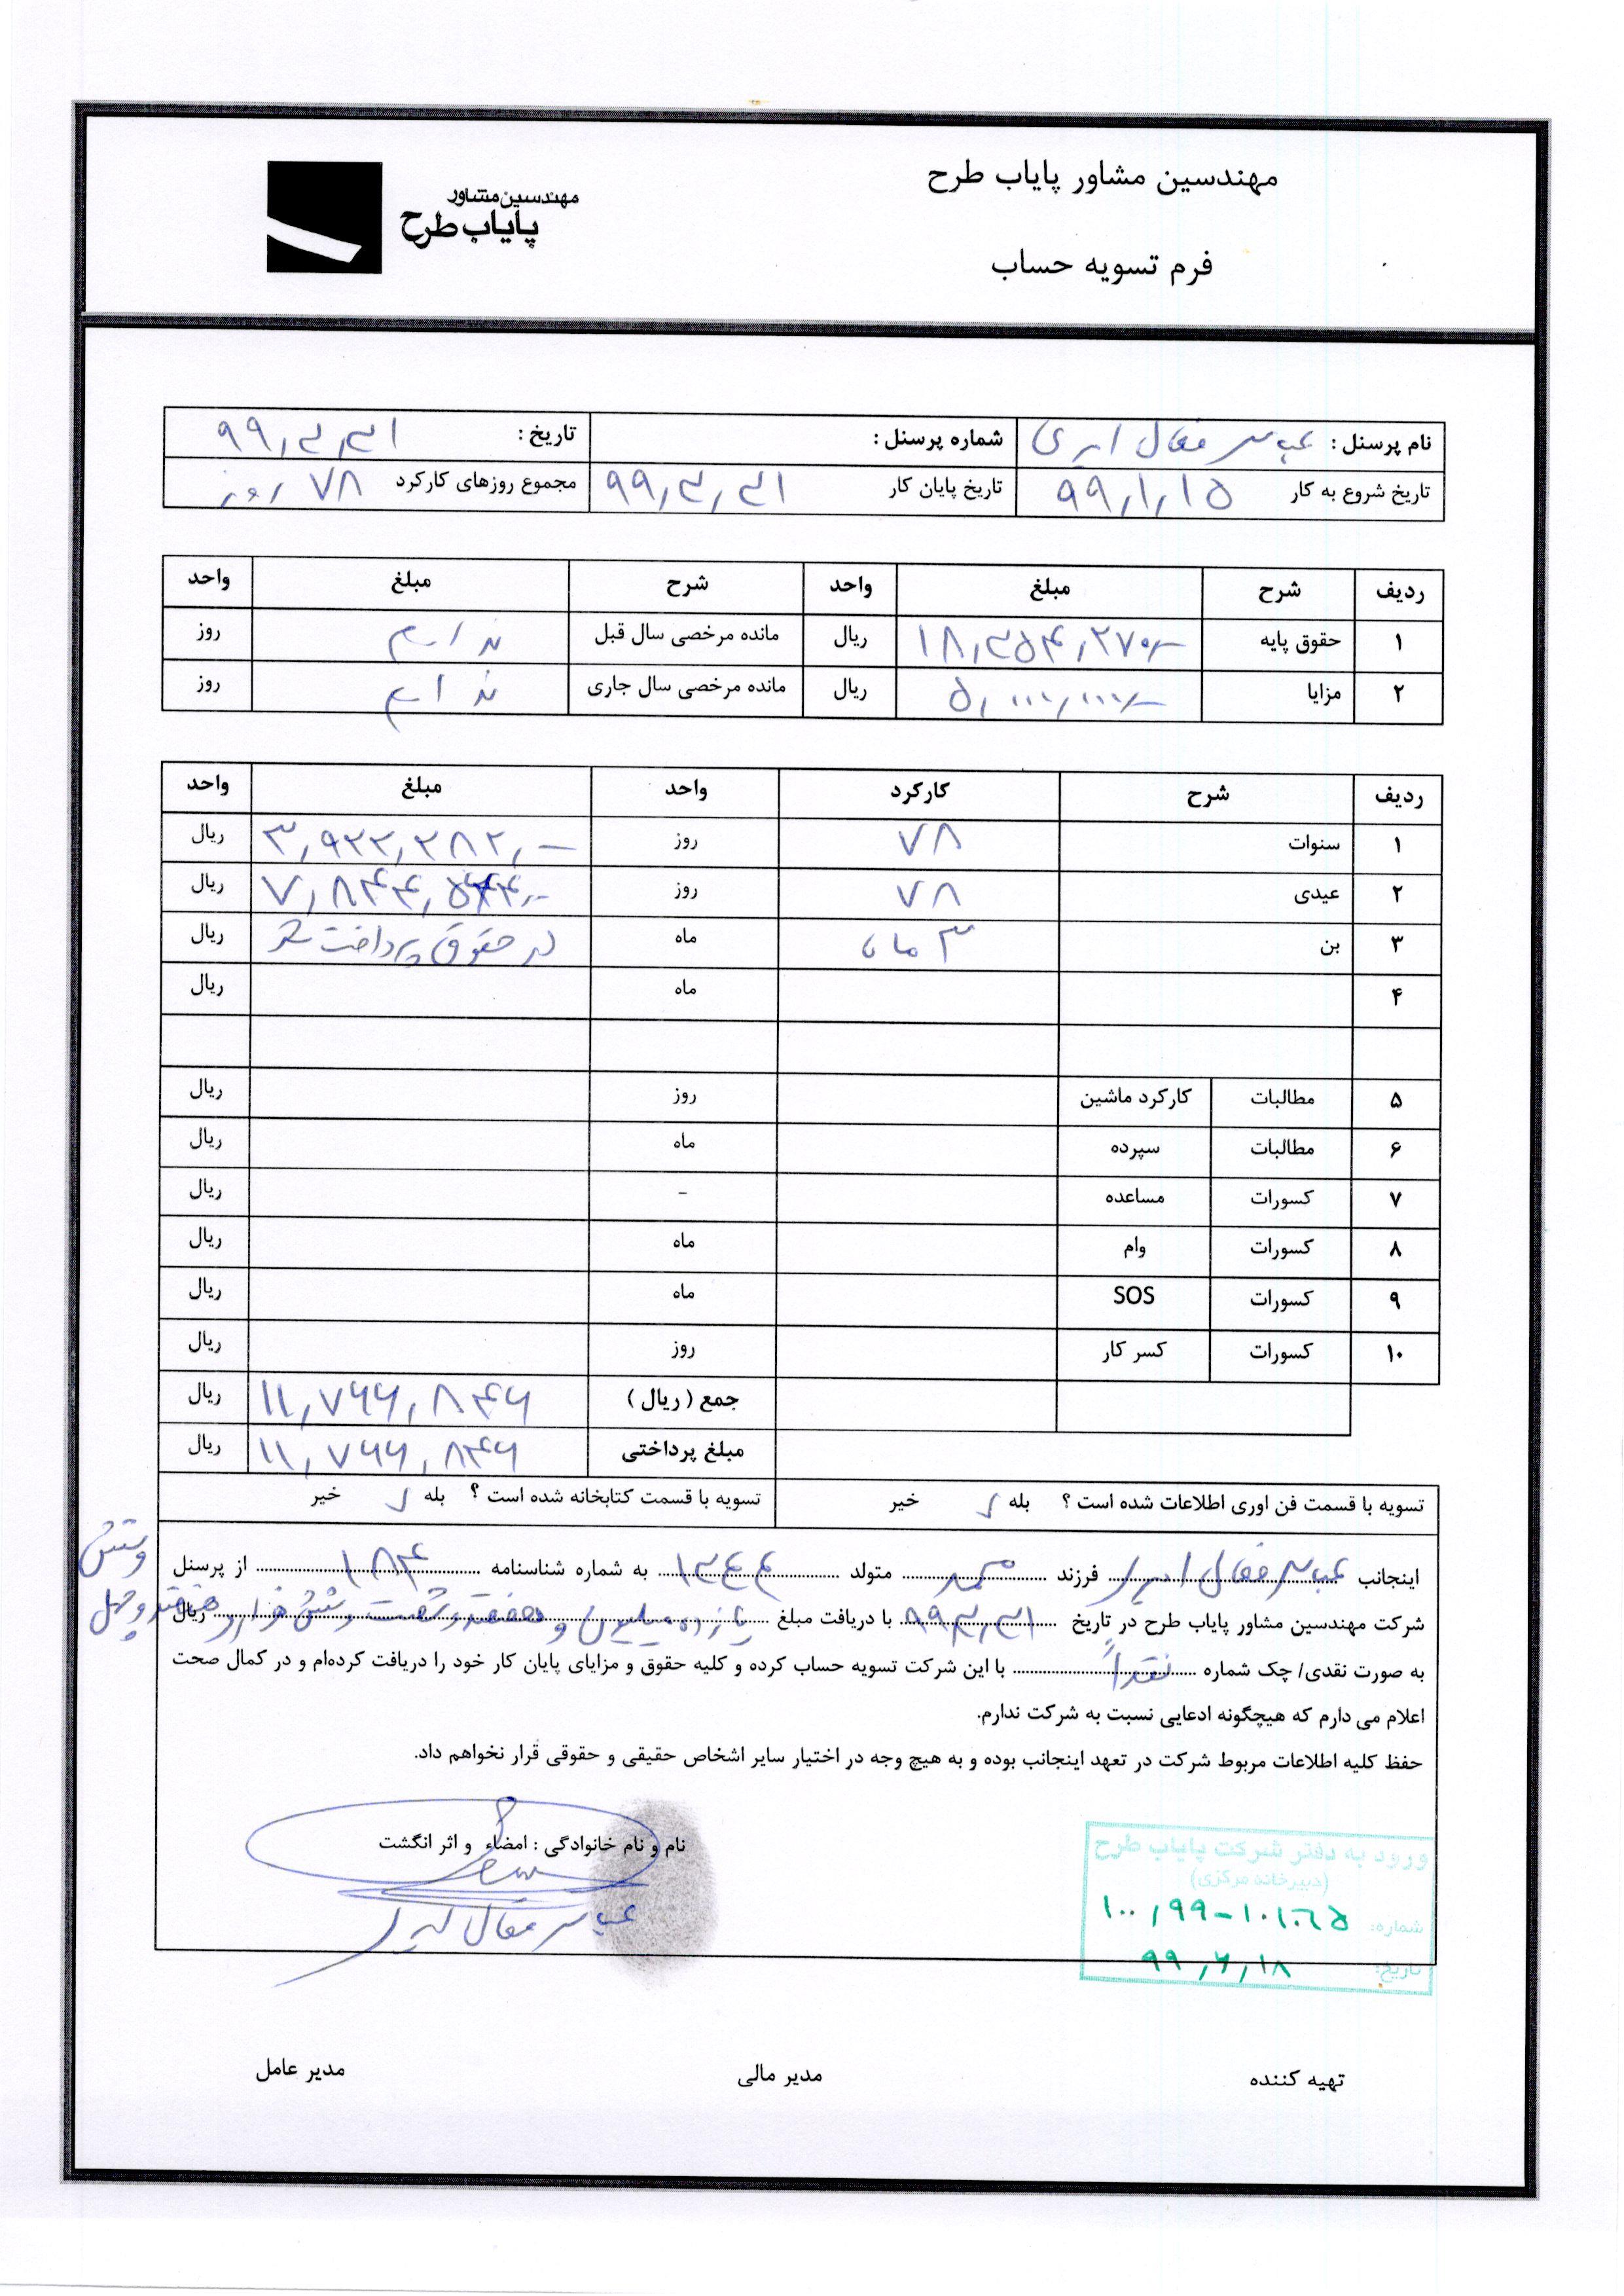 مهندسین مشاور پایاب طرح
مهندسین مشاور
پایاب طرح
فرم تسویه حساب
نام پرسنل : عباس فعال ایری شماره پرسنل : تاریخ : ۹۹,۳,۳۱
تاریخ شروع به کار ۹۹,۱,۱۵ تاریخ پایان کار ۹۹,۳,۳۱ مجموع روزهای کارکرد ۷۸ روز
ردیف شرح مبلغ واحد شرح مبلغ واحد
۱ حقوق پایه ۱۸,۳۵۴,۲۷۰,- ریال مانده مرخصی سال قبل ندارم روز
۲ مزایا ۵,۰۰۰,۰۰۰,- ریال مانده مرخصی سال جاری ندارم روز
ردیف شرح کارکرد واحد مبلغ واحد
۱ سنوات ۷۸ روز ۳,۹۲۲,۲۸۲,- ریال
۲ عیدی ۷۸ روز ۷,۸۴۴,۵۶۴,- ریال
۳ بن ۳ ماه ماه در حقوق پرداخت شد ریال
۴ ماه ریال
۵ مطالبات کارکرد ماشین روز ریال
۶ مطالبات سپرده ماه ریال
۷ کسورات مساعده - ریال
۸ کسورات وام ماه ریال
۹ کسورات SOS ماه ریال
۱۰ کسورات کسر کار روز ریال
جمع ( ریال ) ۱۱,۷۶۶,۸۴۶ ریال
مبلغ پرداختی ۱۱,۷۶۶,۸۴۶ ریال
تسویه با قسمت فن اوری اطلاعات شده است ؟ بله خیر تسویه با قسمت کتابخانه شده است ؟ بله خیر
اینجانب عباس فعال ایری فرزند محمد متولد ۱۳۴۴ به شماره شناسنامه ۱۸۴ از پرسنل
شرکت مهندسین مشاور پایاب طرح در تاریخ ۹۹,۳,۳۱ با دریافت مبلغ یازده میلیون و هفتصد و شصت و شش هزار و هشتصد و چهل و شش ریال
به صورت نقدی/ چک شماره نقداً با این شرکت تسویه حساب کرده و کلیه حقوق و مزایای پایان کار خود را دریافت کرده‌ام و در کمال صحت
اعلام می دارم که هیچگونه ادعایی نسبت به شرکت ندارم.
حفظ کلیه اطلاعات مربوط شرکت در تعهد اینجانب بوده و به هیچ وجه در اختیار سایر اشخاص حقیقی و حقوقی قرار نخواهم داد.
نام و نام خانوادگی : امضاء و اثر انگشت
عباس فعال ایری
ورود به دفتر شرکت پایاب طرح
(دبیرخانه مرکزی)
شماره: ۱۰۰,۹۹-۱۰۱۰۶۵
تاریخ: ۹۹,۶,۱۸
تهیه کننده مدیر مالی مدیر عامل